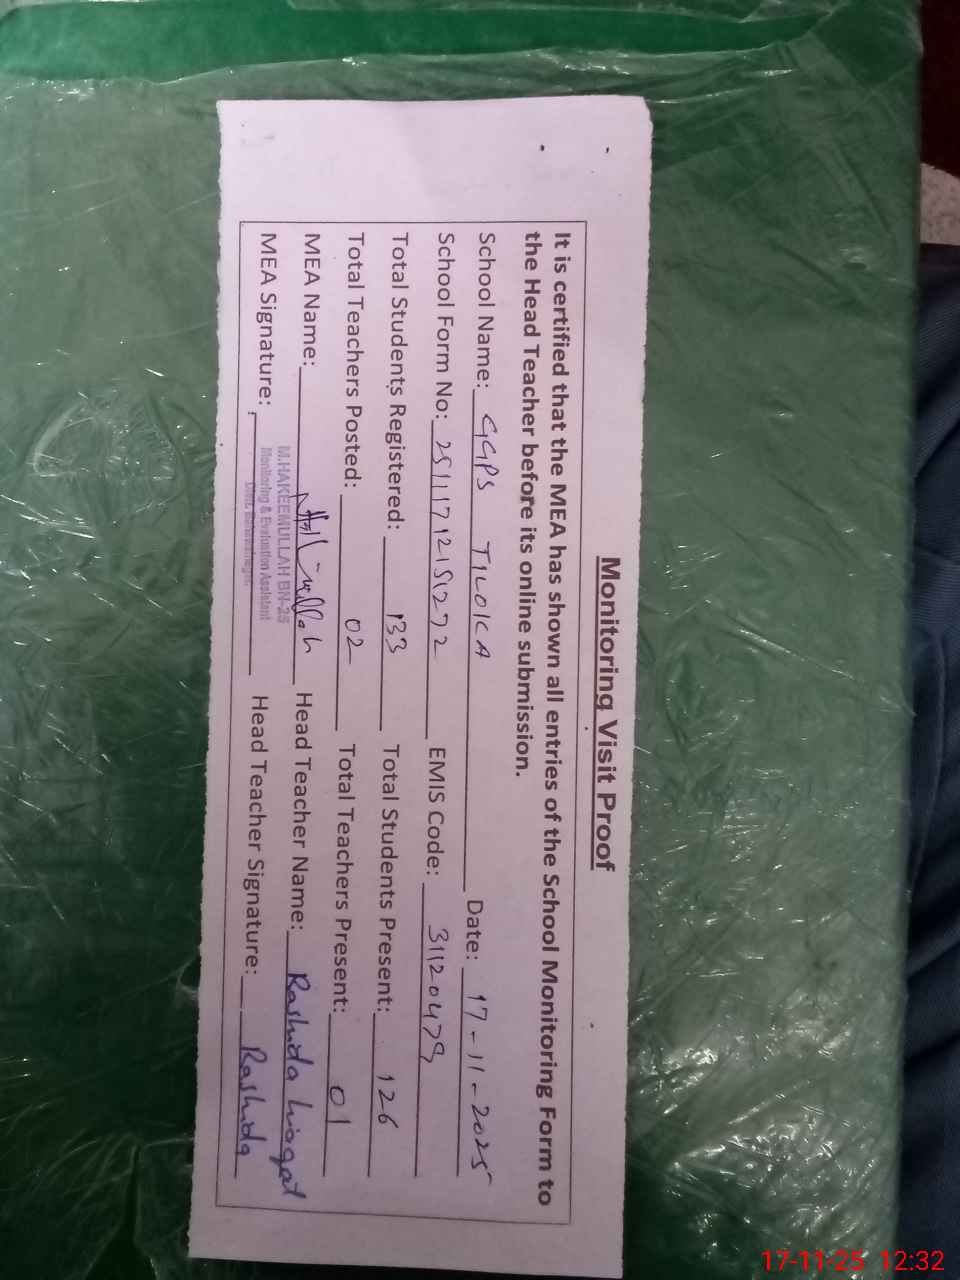 Monitoring Visit Proof
It is certified that the MEA has shown all entries of the School Monitoring Form to
the Head Teacher before its online submission.
School Name: GGPS TILOKA Date: 17-11-2025
School Form No: 25111712151272 EMIS Code: 31120479
Total Students Registered: 133 Total Students Present: 126
Total Teachers Posted: 02 Total Teachers Present: 01
MEA Name: Head Teacher Name: Rashida liaqat
M.HAKEEMULLAH BN-25
Monitoring & Evaluation Assistant
Distt. Bahawalnagar
MEA Signature: Head Teacher Signature: Rashida
17-11-25 12:32